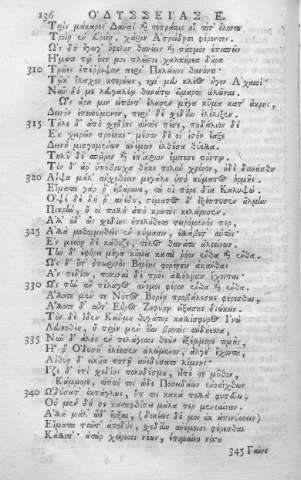 136 ΟΔΥΣΣΕΙΑΣ Ε.
Τρὶς μάκαρες Δαναοὶ καὶ τετράκις οἳ τότ' ὄλοντο
Τροίῃ ἐν εὐρείῃ, χάριν Ἀτρείδῃσι φέροντες.
Ὡς δὴ ἔγωγ' ὄφελον θανέειν καὶ πότμον ἐπισπεῖν
Ἤματι τῷ ὅτε μοι πλεῖστοι χαλκήρεα δοῦρα
310 Τρῶες ἐπέρριψαν περὶ Πηλείωνι θανόντι.
Τῷ κ' ἔλαχον κτερέων, καί μευ κλέος ἦγον Ἀχαιοί·
Νῦν δέ με λευγαλέῳ θανάτῳ εἵμαρτο ἁλῶναι.
Ὣς ἄρα μιν εἰπόντ' ἔλασεν μέγα κῦμα κατ' ἄκρης,
Δεινὸν ἐπεσσύμενον, περὶ δὲ σχεδίην ἐλέλιξεν.
315 Τῆλε δ' ἀπὸ σχεδίης αὐτὸς πέσε, πηδάλιον δὲ
Ἐκ χειρῶν προέηκε· μέσον δέ οἱ ἱστὸν ἔαξε
Δεινὴ μισγομένων ἀνέμων ἐλθοῦσα θύελλα.
Τηλοῦ δὲ σπεῖρον καὶ ἐπίκριον ἔμπεσε πόντῳ.
Τὸν δ' ἄρ' ὑπόβρυχα θῆκε πολὺν χρόνον, οὐδ' δυνάσθη
320 Αἶψα μάλ' ἀνσχεθέειν μεγάλου ὑπὸ κύματος ὁρμῆς·
Εἵματα γάρ ῥ' ἐβάρυνε, τά οἱ πόρε δῖα Καλυψώ.
Ὀψὲ δὲ δή ῥ' ἀνέδυ, στόματος δ' ἐξέπτυσεν ἅλμην
Πικρὴν, ἥ οἱ πολλὴ ἀπὸ κρατὸς κελάρυζεν.
Ἀλλ' οὐδ' ὣς σχεδίης ἐπελήθετο τειρόμενός περ,
325 Ἀλλὰ μεθορμηθεὶς ἐν κύμασιν, ἐλλάβετ' αὐτῆς·
Ἐν μέσσῃ δὲ κάθιζε, τέλος θανάτου ἀλεείνων.
Τὴν δ' ἐφόρει μέγα κῦμα κατὰ ῥόον ἔνθα καὶ ἔνθα.
Ὡς δ' ὅτ' ὀπωρινὸς Βορέης φορέῃσιν ἀκάνθας
Ἂμ πεδίον, πυκιναὶ δὲ πρὸς ἀλλήλῃσιν ἔχονται·
330 Ὣς τὴν ἂμ πέλαγος ἄνεμοι φέρον ἔνθα καὶ ἔνθα.
Ἄλλοτε μέν τε Νότος Βορέῃ προβάλεσκε φέρεσθαι,
Ἄλλοτε δ' αὖτ' Εὖρος Ζεφύρῳ εἴξασκε διώκειν.
Τὸν δὲ ἴδεν Κάδμου θυγάτηρ καλλίσφυρος Ἰνὼ
Λευκοθέη, ἣ πρὶν μὲν ἔην βροτὸς αὐδήεσσα,
335 Νῦν δ' ἁλὸς ἐν πελάγεσσι θεῶν ἐξέμμορε τιμῆς,
Ἥ ῥ' Ὀδυσῆ' ἐλέησεν ἀλώμενον, ἄλγε' ἔχοντα.
Αἰθυίῃ δ' εἰκυῖα ποτῇ ἀνεδύσατο λίμνης·
Ἷζε δ' ἐπὶ σχεδίης πολυδέσμου, εἶπέ τε μῦθον,
Κάμμορε, τίπτε τοι ὧδε Ποσειδάων ἐνοσίχθων
340 Ὠδύσατ' ἐκπάγλως, ὅτι τοι κακὰ πολλὰ φυτεύει;
Οὐ μὲν δή σε καταφθίσει μάλα περ μενεαίνων.
Ἀλλὰ μάλ' ὧδ' ἔρξαι, (δοκέεις δέ μοι οὐκ ἀπινύσσειν)
Εἵματα ταῦτ' ἀποδὺς, σχεδίην ἀνέμοισι φέρεσθαι
Κάλλιπ'· ἀτὰρ χείρεσσι νέων, ἐπιμαίεο νόστου
345 Γαίης